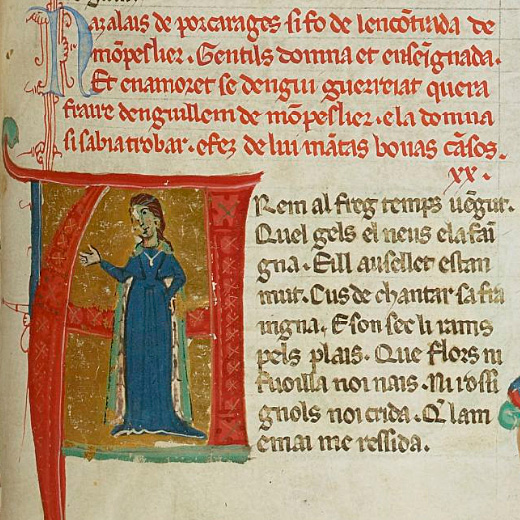 Nazalais de porcarages si fo de lencõtrada de
mõpeslier. Gentils domna et enseignada.
Et enamoret se dengui guerreiat quera
fraire denguillem de mõpeslier. e la domna
si sabia trobar. e fez de lui mãtas bonas cãsos.
xx.
Ar em al freg temps uẽgut.
Quel gels el neus e la faĩ
gna. Eill aucellet estan
mut. Cus de chantar sa fra
ingna. E son sec li rams
pels plais. Que flors ni
fuoilla noi nais. Ni rossi
gnols noi crida. Q̃ lam
e mai me ressida.